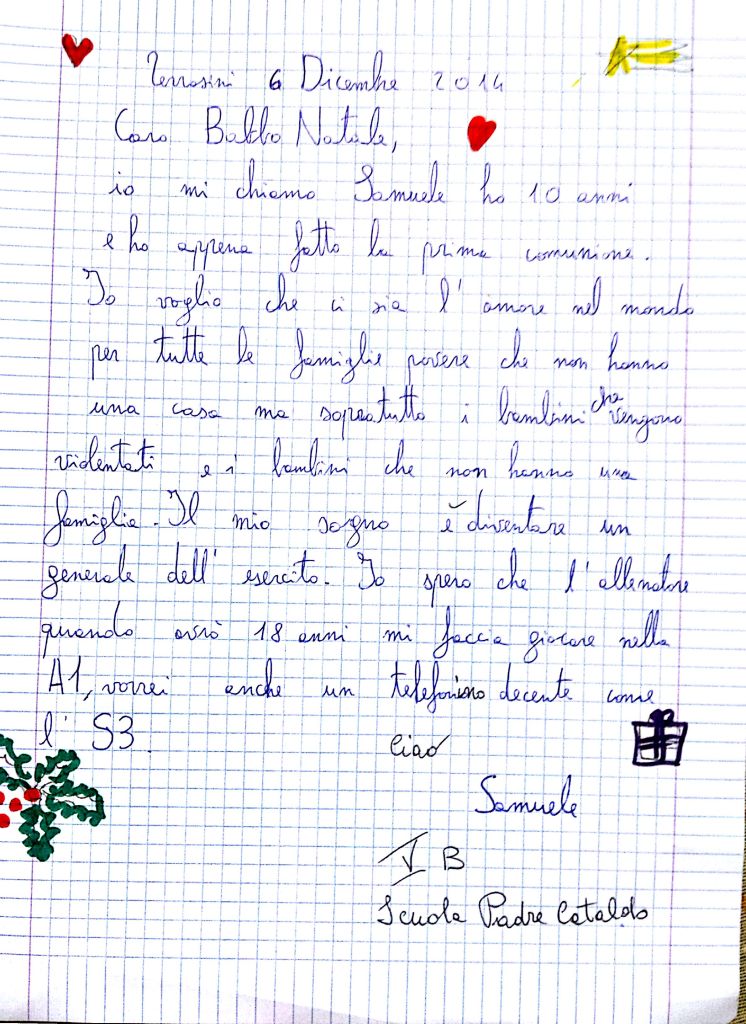 Terrasini 6 Dicembre 2014
Caro Babbo Natale,
io mi chiamo Samuele ho 10 anni
e ho appena fatto la prima comunione.
Io voglio che ci sia l'amore nel mondo
per tutte le famiglie povere che non hanno
una casa ma sopratutto i bambini che vengono
violentati e i bambini che non hanno una
famiglia. Il mio sogno è diventare un
generale dell'esercito. Io spero che l'allenatore
quando avrò 18 anni mi faccia giocare nella
A1, vorrei anche un telefonino decente come
l'S3.
Ciao
Samuele
V B
Scuola Padre Cataldo